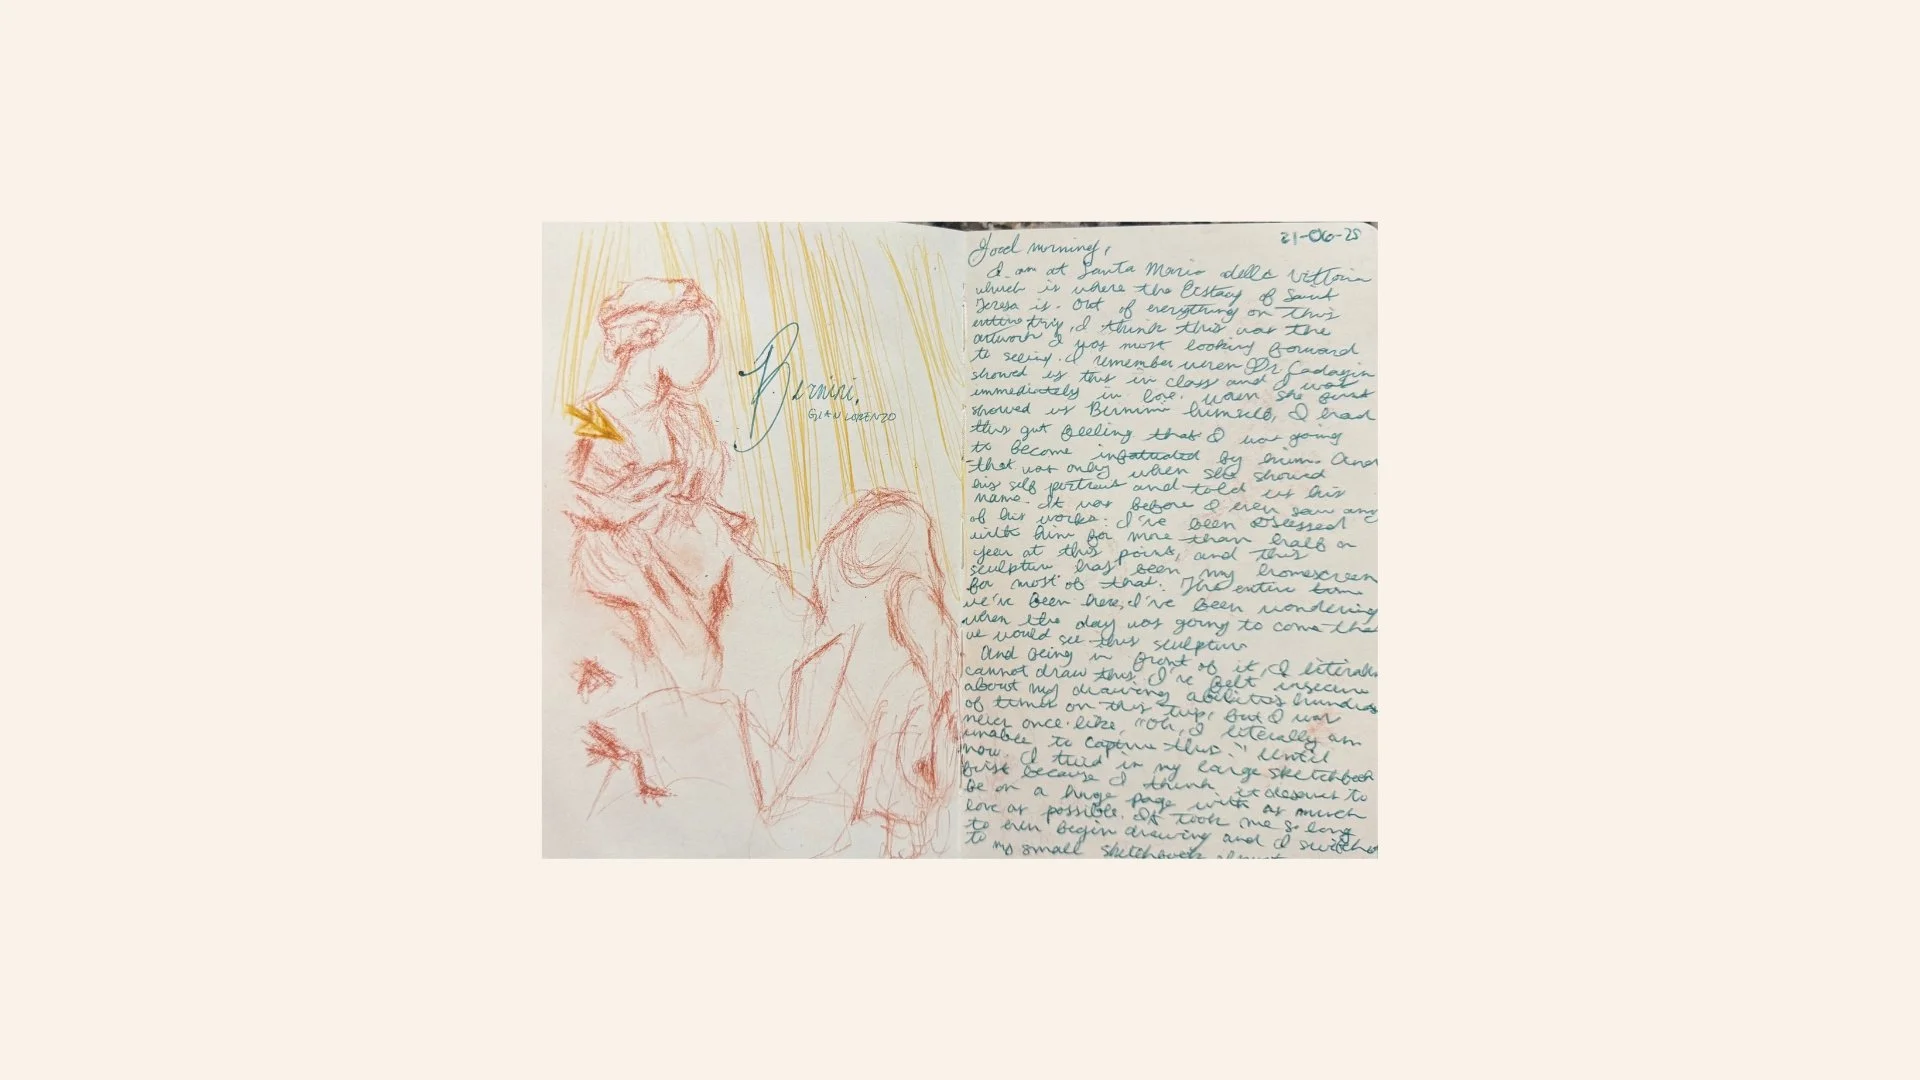 Bernini.
GIAN LORENZO
21-06-25
Good morning,
I am at Santa Maria della Vittoria
which is where the Ecstasy of Saint
Teresa is. Out of everything on this
entire trip, I think this was the
artwork I was most looking forward
to seeing. I remember when Dr Gadagin
showed us this in class and I was
immediately in love. When she first
showed us Bernini himself, I had
this gut feeling that I was going
to become infatuated by him. And
that was only when she showed
his self portrait and told us his
name. It was before I even saw any
of his works. I've been obsessed
with him for more than half a
year at this point, and this
sculpture has been my homescreen
for most of that. The entire time
we've been here, I've been wondering
when the day was going to come tha
we would see this sculpture
And being in front of it, I literally
cannot draw this. I've felt insecure
about my drawing abilities hundreds
of times on this trip, but I was
never once like, "Oh, I literally am
unable to capture this." Until
now. I tried in my large sketchbook
first because I think it deserves to
be on a huge page with as much
love as possible. It took me so long
to even begin drawing and I switche
to my small sketchbook almost